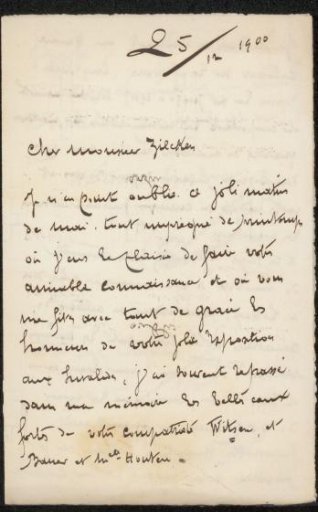 25/12 1900
cher monsieur Zilcken
Je n'ai point oublié ce joli matin
de mai tout imprégné de printemps
où j'eus le plaisir de faire votre
aimable connaissance et où vous
me fîtes avec tant de grâce les
honneurs de votre jolie exposition
aux Invalides, j'ai souvent repassé
dans ma mémoire les belles eaux
fortes de votre compatriote Witsen, et
Bauer et Mlle Houten.